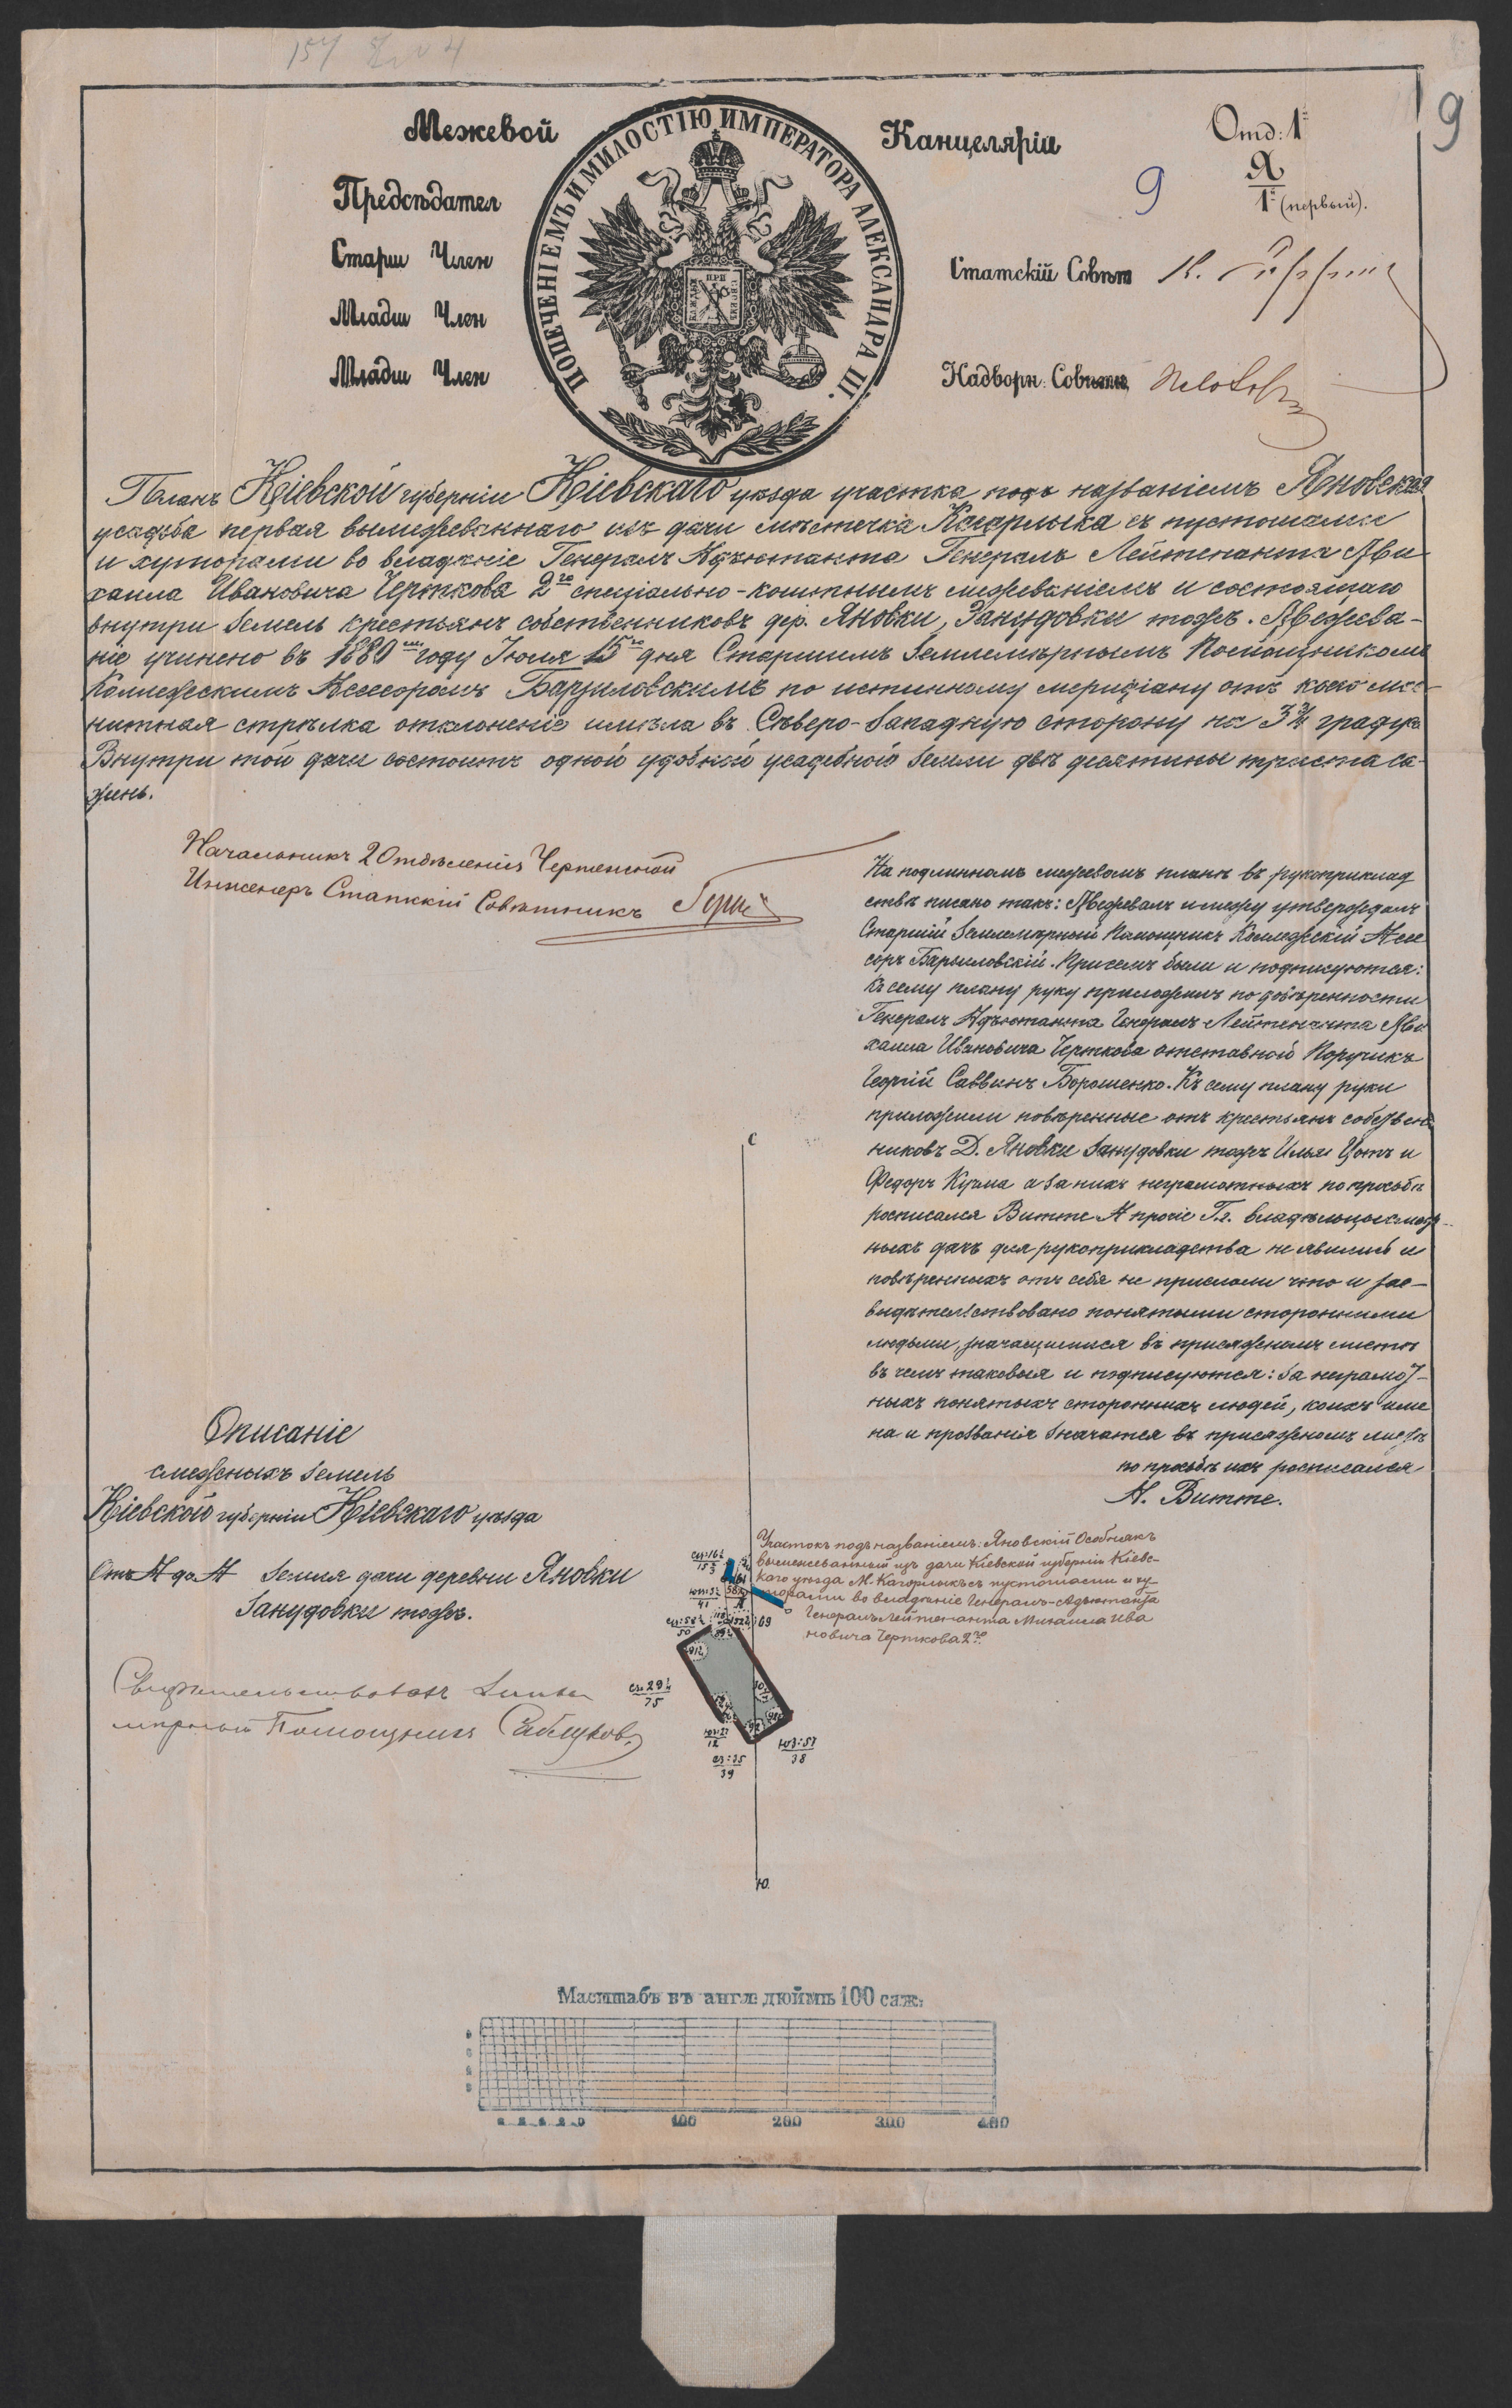 9
Межевой Канцеляріи
Отд: 1е
Я
1й (первый).
9
ПОПЕЧЕНІЕМЪ И МИЛОСТІЮ ИМПЕРАТОРА АЛЕКСАНДРА III.
Предсѣдател
Старш Член
Статскій Совѣт
Младш Член
Младш Член
Надворн: Совѣтн
Планъ Кіевской губерніи Кіевскаго уѣзда участка подъ названіемъ Яновская
усадьба первая вымежеваннаго изъ дачи мѣстечка Кагарлыка съ пустошами
и хуторами во владѣніе Генералъ Адъютанта Генералъ Лейтенанта Ми
хаила Ивановича Черткова 2го спеціально-коштнымъ межеваніемъ и состоящаго
внутри земель крестьянъ собственниковъ дер. Яновки, Занудовки тожъ. Межева-
ніе учинено въ 1880мъ году Іюля 15го дня Старшимъ Землемѣрнымъ Помощникомъ
Коллежскимъ Асессоромъ по истинному меридіану отъ коего маг-
нитная стрѣлка отклоненіе имѣла въ Сѣверо-Западную сторону на 3¾ градуса
Внутри той дачи состоитъ одной удобной усадебной земли двѣ десятины триста са-
жень.
Начальникъ 2 Отдѣленія Чертежной
Инженеръ Статскій Совѣтникъ
На подлинномъ межевомъ планѣ въ рукоприклад
ствѣ писано такъ: Межевалъ и межу утверждалъ
Старшій Землемѣрный Помощникъ Коллежскій Асес
соръ. При семъ были и подписуются:
Къ сему плану руку приложилъ по довѣренности
Генералъ Адъютанта Генералъ-Лейтенанта Ми
хаила Ивановича Черткова отставной Поручикъ
Георгій Саввинъ Борошенко. Къ сему плану руки
приложили повѣренные отъ крестьянъ собствен
никовъ Д. Яновки Занудовки тожъ Илья Цотъ и
Федоръ Кузма а за нихъ неграмотныхъ по просьбѣ
росписался Витте А прочіе Г.г. владѣльцы смеж-
ныхъ дачъ для рукоприкладства не явились и
повѣренныхъ отъ себя не прислали что и зас-
видѣтельствовано понятыми сторонними
людьми, значащимися въ присяжномъ листѣ
въ чемъ таковыя и подписуются: За неграмот-
ныхъ понятыхъ стороннихъ людей, коихъ име
на и прозванія значатся въ присяжномъ листѣ
по просьбѣ ихъ росписался
А. Витте.
С
Описаніе
смежныхъ земель
Кіевской губерніи Кіевскаго уѣзда
Отъ А до А Земля дачи деревни Яновки
Занудовки тожъ.
Свидѣтельствовалъ Землемѣрный Помощникъ
Участокъ подъ названіемъ: Яновскій Особнякъ
вымежеванный изъ дачи Кіевской губерніи Кіевс-
каго уѣзда М. Кагарлыкъ съ пустошами и ху-
торами во владѣніе Генералъ-Адъютанта
Генералъ Лейтенанта Михаила Ива
новича Черткова 2го.
69
75
12
39
38
Ю.
Масштабъ въ англ: дюймѣ 100 саж:
0 100 200 300 400